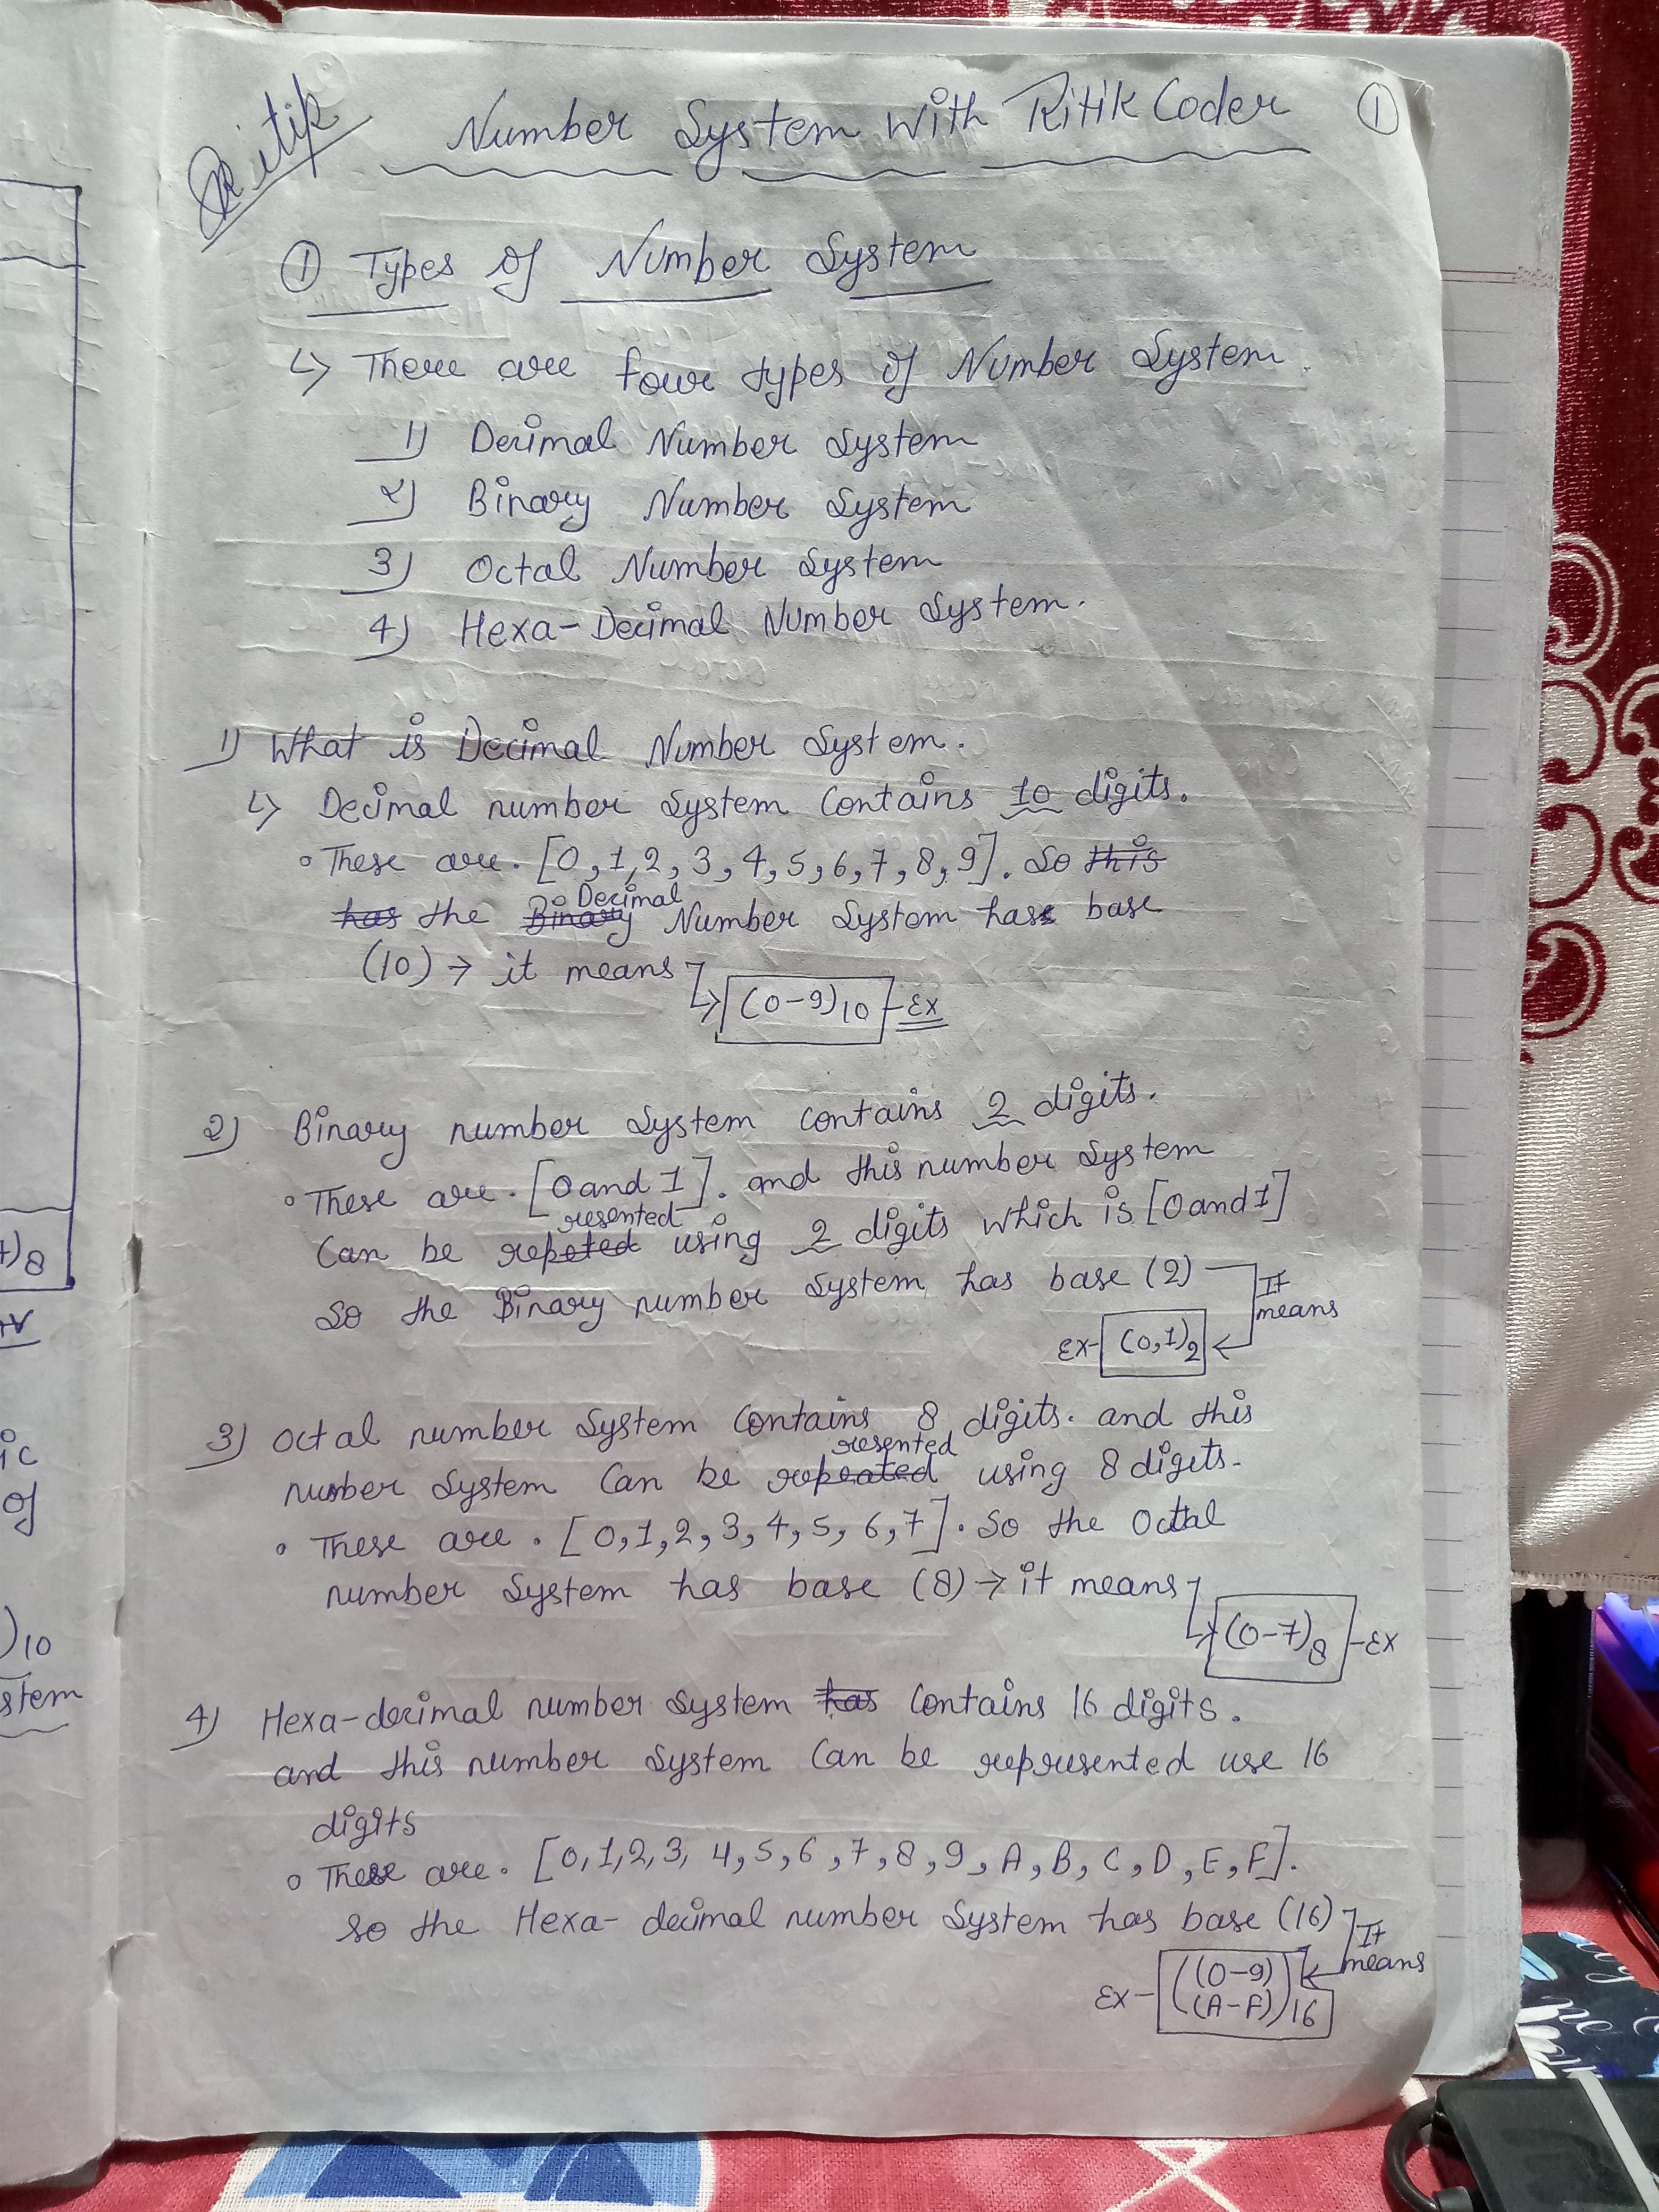 Ritik
Number System with Ritik Coder ①
① Types of Number System
↳ There are four types of Number System.
1) Decimal Number System
2) Binary Number System
3) Octal Number System
4) Hexa-Decimal Number System.
1) What is Decimal Number System.
↳ Decimal number System Contains 10 digits.
• These are. [0,1,2,3,4,5,6,7,8,9]. So this
has the Binary Decimal Number System has base
(10) → it means
(0-9)10 - Ex
2) Binary number System contains 2 digits.
• These are. [0 and 1]. and this number System
resented
Can be repeted using 2 digits which is [0 and 1]
So the Binary number System has base (2) It
means
Ex- (0,1)2
3) Octal number System Contains 8 digits. and this
resented
number System Can be repeated using 8 digits.
• These are. [0,1,2,3,4,5,6,7]. So the Octal
number System has base (8) → it means
(0-7)8 - Ex
4) Hexa-decimal number System has Contains 16 digits.
and this number System Can be represented use 16
digits
• These are. [0,1,2,3,4,5,6,7,8,9,A,B,C,D,E,F].
So the Hexa-decimal number System has base (16) It
means
Ex- ((0-9)
(A-F))16
)8
ic
of
)10
stem